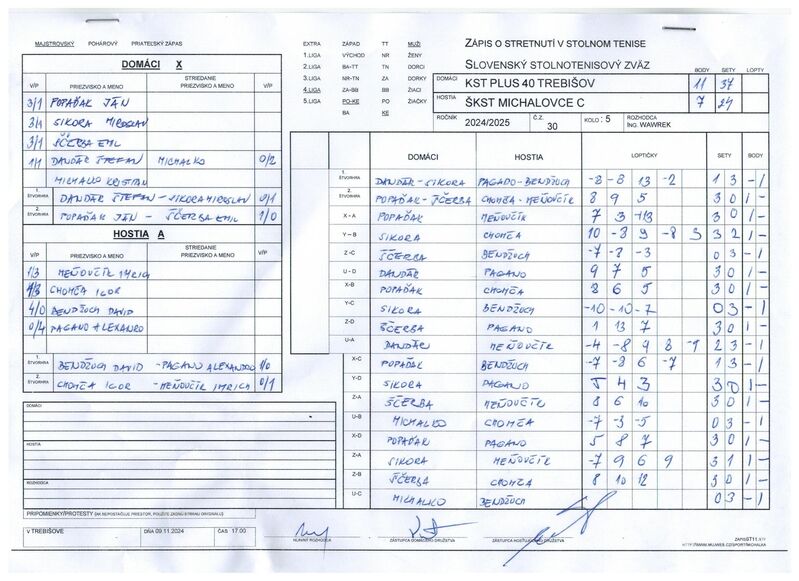 MAJSTROVSKÝ POHÁROVÝ PRIATEĽSKÝ ZÁPAS
DOMÁCI X
V/P PRIEZVISKO A MENO STRIEDANIE PRIEZVISKO A MENO V/P
3/1 POPAĎAK JÁN
3/1 SIKORA MIROSLAV
3/1 ŠČERBA EMIL
1/1 DANDÁR ŠTEFAN MICHALKO 0/2
MICHALKO KRISTIAN
1. ŠTVORHRA DANDÁR ŠTEFAN - SIKORA MIROSLAV 0/1
2. ŠTVORHRA POPAĎAK JÁN - ŠČERBA EMIL 1/0
HOSTIA A
V/P PRIEZVISKO A MENO STRIEDANIE PRIEZVISKO A MENO V/P
1/3 MEŇOVČÍK IMRICH
/3 CHOMČA IGOR
4/0 BENDŽUCH DAVID
0/4 PAGANO ALEXANDRO
1. ŠTVORHRA BENDŽUCH DAVID - PAGANO ALEXANDRO 1/0
2. ŠTVORHRA CHOMČA IGOR - MEŇOVČÍK IMRICH 0/1
DOMÁCI
HOSTIA
ROZHODCA
PRIPOMIENKY/PROTESTY (AK NEPOSTAČUJE PRIESTOR, POUŽITE ZADNÚ STRANU ORIGINÁLU)
V TREBIŠOVE DŇA 09.11.2024 ČAS 17.00
EXTRA ZÁPAD TT MUŽI
1.LIGA VÝCHOD NR ŽENY
2.LIGA BA-TT TN DORCI
3.LIGA NR-TN ZA DORKY
4.LIGA ZA-BB BB ŽIACI
5.LIGA PO-KE PO ŽIAČKY
BA KE
ZÁPIS O STRETNUTÍ V STOLNOM TENISE
SLOVENSKÝ STOLNOTENISOVÝ ZVÄZ
BODY SETY LOPTY
DOMÁCI KST PLUS 40 TREBIŠOV 11 37
HOSTIA ŠKST MICHALOVCE C 7 24
ROČNÍK 2024/2025 Č.Z. 30 KOLO : 5 ROZHODCA ING. WAWREK
DOMÁCI HOSTIA LOPTIČKY SETY BODY
1. ŠTVORHRA DANDÁR - SIKORA PAGANO - BENDŽUCH -8 -8 13 -2 1 3 - 1
2. ŠTVORHRA POPAĎAK - ŠČERBA CHOMČA - MEŇOVČÍK 8 9 5 3 0 1 -
X - A POPAĎAK MEŇOVČÍK 7 3 13 3 0 1 -
Y - B SIKORA CHOMČA 10 -8 9 -8 9 3 2 1 -
Z - C ŠČERBA BENDŽUCH -7 -8 -3 0 3 - 1
U - D DANDÁR PAGANO 9 7 5 3 0 1 -
X-B POPAĎAK CHOMČA 8 6 5 3 0 1 -
Y-C SIKORA BENDŽUCH -10 -10 -7 0 3 - 1
Z-D ŠČERBA PAGANO 1 13 7 3 0 1 -
U-A DANDÁR MEŇOVČÍK -4 -8 9 8 -9 2 3 - 1
X-C POPAĎAK BENDŽUCH -7 -8 6 -7 1 3 - 1
Y-D SIKORA PAGANO 5 4 3 3 0 1 -
Z-A ŠČERBA MEŇOVČÍK 8 6 10 3 0 1 -
U-B MICHALKO CHOMČA -7 -3 -5 0 3 - 1
X-D POPAĎAK PAGANO 5 8 7 3 0 1 -
Z-A SIKORA MEŇOVČÍK -7 9 6 9 3 1 1 -
Z-B ŠČERBA CHOMČA 8 10 12 3 0 1 -
U-C MICHALKO BENDŽUCH 0 3 - 1
HLAVNÝ ROZHODCA ZÁSTUPCA DOMÁCEHO DRUŽSTVA ZÁSTUPCA HOSŤUJÚCEHO DRUŽSTVA